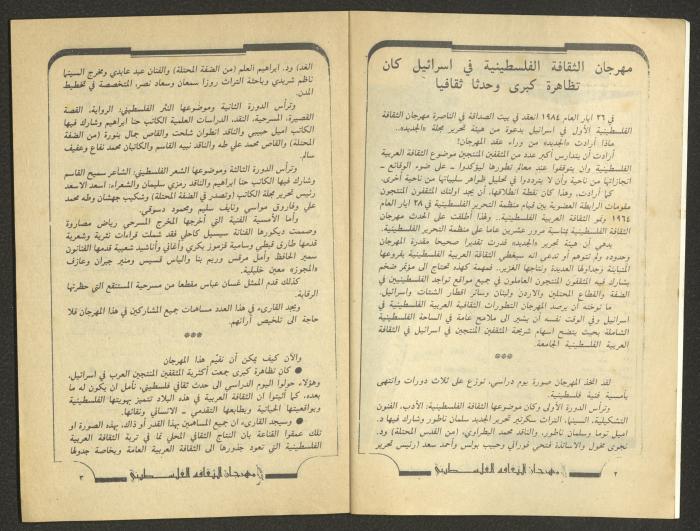 مهرجان الثقافة الفلسطينية في اسرائيل كان
تظاهرة كبرى وحدثا ثقافيا
في ٢٦ ايار العام ١٩٨٤ انعقد في بيت الصداقة في الناصرة مهرجان الثقافة
الفلسطينية الأول في اسرائيل بدعوة من هيئة تحرير مجلة «الجديد».
ماذا أرادت «الجديد» من وراء عقد المهرجان؟
أرادت ان يتدارس أكبر عدد من المثقفين المنتجين موضوع الثقافة العربية
الفلسطينية وان يتوقفوا عند معالم تطورها ليؤكدوا ــ على ضوء الوقائع ــ
انجازاتها من ناحية وأن لا يترددوا في تحليل ظواهر سلبياتها من ناحية أخرى.
كما أرادت، وهذا كان نقطة انطلاقها، أن يجد اولئك المثقفون المنتجون
مقومات الرابطة العضوية بين قيام منظمة التحرير الفلسطينية في ٢٨ ايار العام
١٩٦٤ ونمو الثقافة العربية الفلسطينية.. ولهذا أطلقت على الحدث مهرجان
الثقافة الفلسطينية بمناسبة مرور عشرين عاما على منظمة التحرير الفلسطينية.
بدهي أن هيئة تحرير «الجديد» قدرت تقديرا صحيحا مقدرة المهرجان
وحدوده ولم تتوهم أو تدعي انه سيغطي الثقافة العربية الفلسطينية بفروعها
المتباينة وجداولها العديدة ونتاجها الغزير.. فمهمة كهذه تحتاج الى مؤتمر ضخم
يشارك فيه المثقفون المنتجون العاملون في جميع مواقع تواجد الفلسطينيين في
الضفة والقطاع المحتلين والاردن ولبنان وسائر اقطار الشتات واسرائيل.
ما توخته أن يرصد المهرجان التطورات الثقافية العربية الفلسطينية في
اسرائيل وفي الوقت نفسه أن يشير الى ملامح عامة في الساحة الفلسطينية
الشاملة بحيث يتضح اسهام شريحة المثقفين المنتجين في اسرائيل في الثقافة
العربية الفلسطينية الجامعة.
***
لقد اتخذ المهرجان صورة يوم دراسي، توزع على ثلاث دورات وانتهى
بأمسية فنية فلسطينية.
وترأس الدورة الأولى وكان موضوعها الثقافة الفلسطينية: الأدب، الفنون
التشكيلية، السينما، التراث سكرتير تحرير الجديد سلمان ناطور وشارك فيها د.
اميل توما وسلمان ناطور، والناقد محمد البطراوي، (من القدس المحتلة) ود.
نجوى مخول والاساتذة فتحي فوراني وحبيب بولس وأحمد سعد (رئيس تحرير
٢ مهرجان الثقافة الفلسطيني
الغد) ود. ابراهيم العلم (من الضفة المحتلة) والفنان عبد عابدي ومخرج السينما
ناظم شريدي وباحثة التراث روزا سمعان وسعاد نصر، المتخصصة في تخطيط
المدن.
وترأس الدورة الثانية وموضوعها النثر الفلسطيني: الرواية، القصة
القصيرة، المسرحية، النقد، الدراسات العلمية الكاتب حنا ابراهيم وشارك فيها
الكاتب اميل حبيبي والناقد انطوان شلحت والقاص جمال بنورة (من الضفة
المحتلة) والقاص محمد علي طه والناقد نبيه القاسم والكاتبان محمد نفاع وعفيف
سالم.
وترأس الدورة الثالثة وموضوعها الشعر الفلسطيني: الشاعر سميح القاسم
وشارك فيها الكاتب حنا ابراهيم والناقد رمزي سليمان والشعراء: اسعد الاسعد
رئيس تحرير مجلة الكاتب (وتصدر في الضفة المحتلة) وشكيب جهشان وطه محمد
علي وفاروق مواسي ونايف سليم ومحمود دسوقي.
وأما الأمسية الفنية التي أخرجها المخرج المسرحي رياض مصاروة
وصممت ديكورها الفنانة سيسيل كاحلي فقد شملت قراءات نثرية وشعرية
قدمها طارق قبطي وسامية قزموز بكري وأغاني وأناشيد شعبية قدمها الفنانون
سمير الحافظ وأمل مرقس وريم بنا والياس قسيس ومنير جبران وعازف
«المجوز» معين خليلية.
كذلك قدم الممثل غسان عباس مقطعا من مسرحية المستنقع التي حظرتها
الرقابة.
ويجد القارىء في هذا العدد مساهمات جميع المشاركين في هذا المهرجان فلا
حاجة الى تلخيص آرائهم.
***
والآن كيف يمكن أن نقيّم هذا المهرجان
● كان تظاهرة كبرى جمعت أكثرية المثقفين المنتجين العرب في اسرائيل،
وهؤلاء حولوا اليوم الدراسي الى حدث ثقافي فلسطيني، نأمل ان يكون له ما
بعده، كما أثبتوا ان الثقافة العربية في هذه البلاد تتميز بهويتها الفلسطينية
وبواقعيتها الحياتية وبطابعها التقدمي ــ الانساني ونقائها.
● وسيجد القارىء ان جميع المساهمين بهذا القدر أو ذاك، بهذه الصورة او
تلك عمقوا القناعة بان النتاج الثقافي المحلي نما في تربة الثقافة العربية
الفلسطينية التي تعود جذورها الى الثقافة العربية العامة وبخاصة جدولها
مهرجان الثقافة الفلسطيني ٣